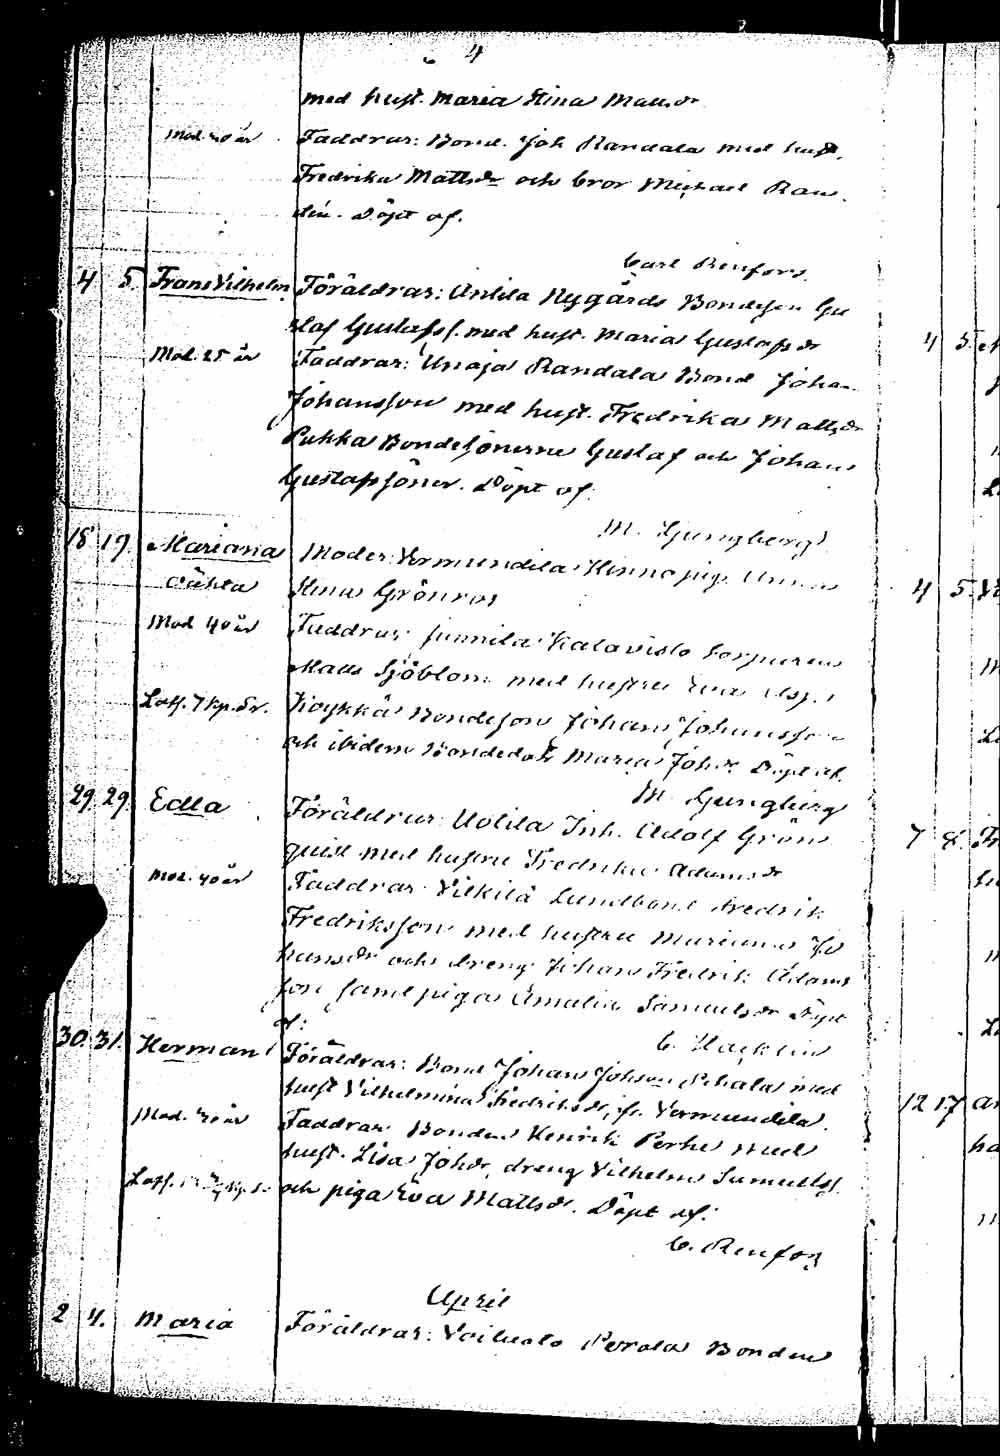 4
med hust. Maria Stina Mattsdr
Mod. 40 år Faddrar: Bond. Joh Randala med hust.
Fredrika Mattsdr och bror Michael Ran
din. Döpt af.
Carl Renfors.
4 5. Frans Vilhelm Föräldrar: Anlila Nygårds Bondeson Gu
staf Gustafss. med hust. Maria Gustafsdr
Mod. 25 år Faddrar: Unaja Randala Bond Johan
Johansson med hust. Fredrika Mattsdr
Pukka Bondesönerne Gustaf och Johan
Gustafssöner. Döpt af.
M. Ljungberg
18 19. Mariana Moder: Vermundila Hinno pig. Anna
oäkta Stina Grönros
Mod 40 år Faddrar: Kalavislo
Matts Sjöblom med hustru Eva
Köykkä Bondeson Johan Johansson
och ibidem Bondedotr Maria Johdr Döpt af.
M. Ljungberg
29. 29. Edla Föräldrar: Uotila Inh. Adolf Grön
quist med hustru Fredrika Adamsdr
Mod. 40 år Faddrar: Vilkilä Lundbond Fredrik
Fredriksson med hustru Mariana Jo
hansdr och dreng Johan Fredrik Adams
son samt pigan Amalia Samuelsdr Döpt
af:
C. Hacklin
30. 31. Herman Föräldrar: Bond Johan Johson med
hust Vilhelmina Fredriksdr, fr. Vermundila.
Mod. år Faddrar: Bonden Henrik Perho med
hust. Lisa Johdr, dreng Vilhelm Samuelss.
och piga Eva Mattsdr. Döpt af:
C. Renfors
April
2 4. Maria Föräldrar: Perala Bonden
4 5.
4 5.
7 8. Fr
12 17